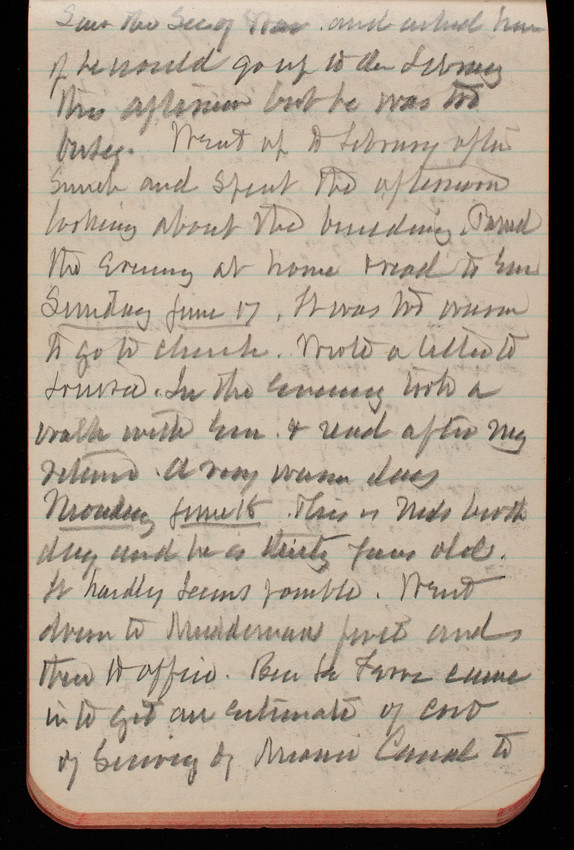 Saw the Sec of War and asked him
if he would go up to the Library
this afternoon but he was too
busy. Went up to Library after
lunch and spent the afternoon
looking about the building. Passed
the evening at home & read to Em
Sunday June 17. It was too warm
to go to church. Wrote a letter to
Louisa. In the evening took a
walk with Em. & read after my
return. A very warm day
Monday June 18. This is Neds birth
day and he is thirty years old.
It hardly seems possible. Went
down to first and
then to office. Ben La came
in to get an estimate of cost
of Survey of Miami Canal to